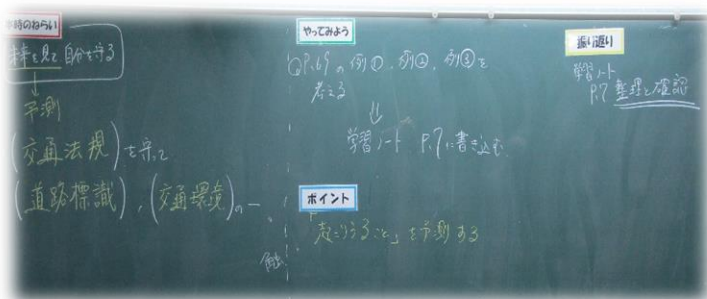 本時のねらい
未来を見て自分を守る
↓
予測
(交通法規)を守って
(道路標識),(交通環境)の一
やってみよう
P.69の例①,例②,例③を
考える
↓
学習ノート P.7に書き込む
ポイント
「起こりうること」を予測する
振り返り
学習ノート
P.7 整理と確認